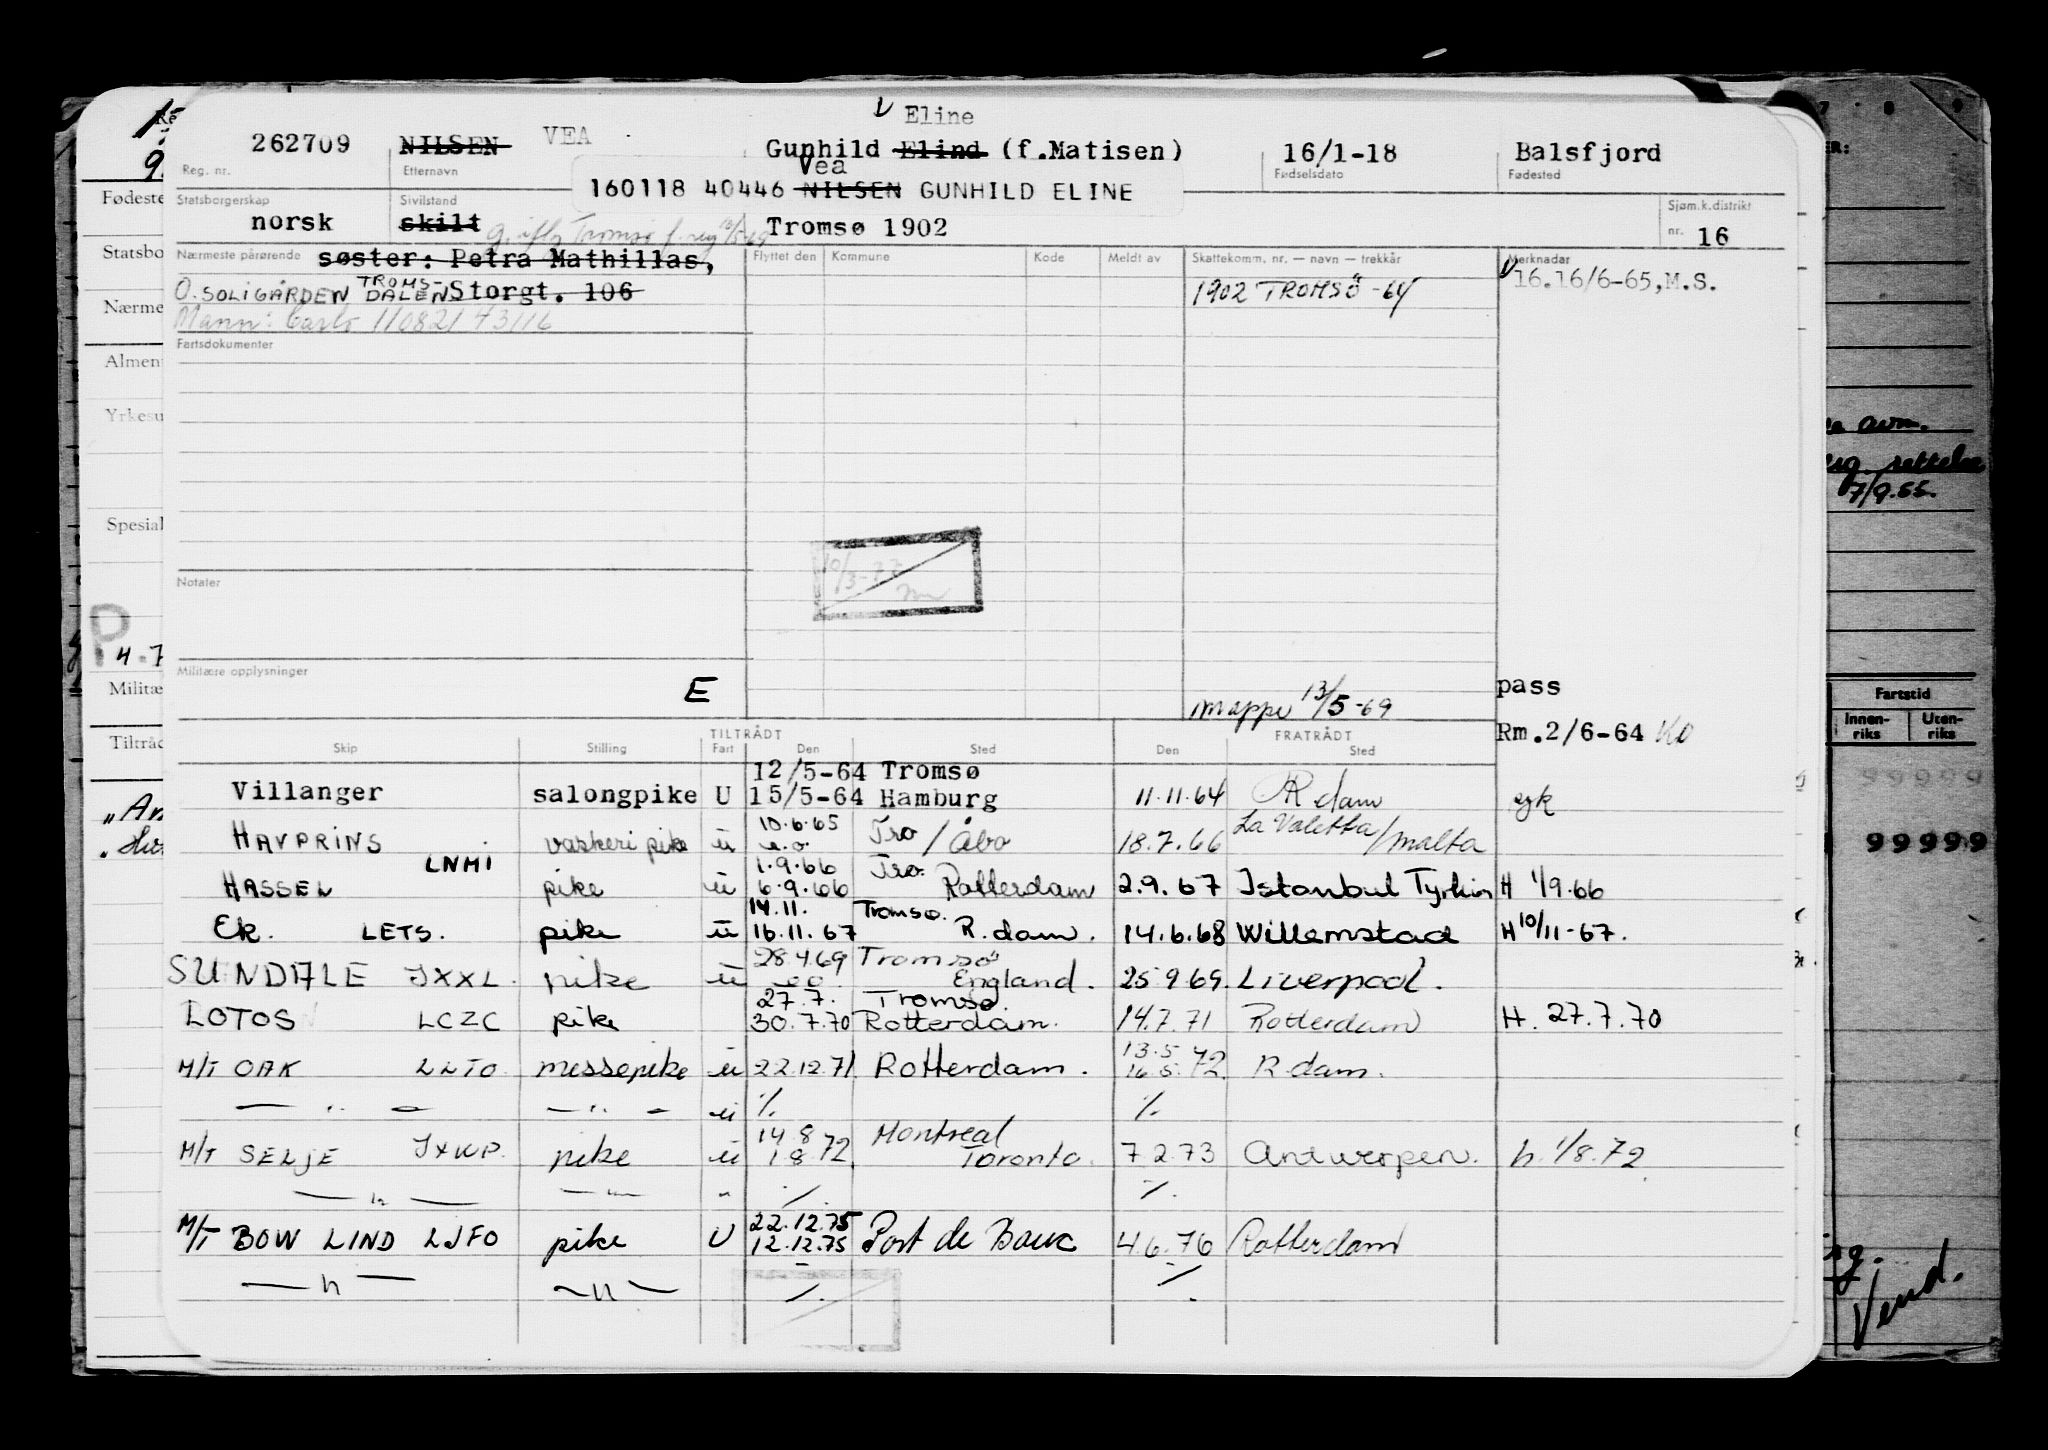 Eline
262709 NILSEN VEA Gunhild Elind (f.Matisen) 16/1-18 Balsfjord
Reg. nr. Etternavn Vea Fødselsdato Fødested
160118 40446 NILSEN GUNHILD ELINE
Statsborgerskap Sivilstand Sjøm.k.distrikt
norsk skilt Tromsø 1902 nr. 16
Nærmeste pårørende søster: Petra Mathillas, Flyttet den Kommune Kode Meldt av Skattekomm. nr. — navn — trekkår Merknader
O. SOLIGÅRDEN TROMS-DALEN Storgt. 106 1902 TROMSÖ -64 16.16/6-65, M.S.
Mann: Carlo 110821 43116
Fartsdokumenter
10/3-77
Notater
Militære opplysninger
E pass
mappe 13/5-69
Rm.2/6-64
TILTRÅDT FRATRÅDT
Skip Stilling Fart Den Sted Den Sted
12/5-64 Tromsø
Villanger salongpike U 15/5-64 Hamburg 11.11.64 R dam syk
10.6.65
HAVPRINS vaskeri pike u Tro / Åbo 18.7.66 La Valetta / malta
LNMI 1.9.66 Tro.
HASSEL pike u 6.9.66 Rotterdam 2.9.67 Istanbul H 1/9.66
14.11. Tromsø.
Ek. LETS. pike u 16.11.67 R.dam. 14.6.68 Willemstad H 10/11-67.
28.4.69 Tromsö
SUNDALE JXXL. pike u England. 25.9.69. Liverpool.
27.7. Tromsø
LOTOS LCZC pike 30.7.70 Rotterdam. 14.7.71 Rotterdam H. 27.7.70
13.5
M/T OAK LLTO messepike u 22.12.71. Rotterdam. 16.5.72 R.dam.
— " — — " — u % %
14.8 Montreal
M/T SELJE JXWP. pike u 1.8.72. Toronto. 7.2.73 Antwerpen. h. 1/8.72
— " — — " — " % %
22.12.75
M/T BOW LIND LJFO pike U 12.12.75 Port de Bouc 4.6.76 Rotterdam
— " — — " — % %
Fødeste
Statsbo
Nærme
Almen
Yrkesu
Spesial
P
4.7
Militæ
Tiltråd
7 8 9
avm.
rettelse
7/9.55.
Fartstid
Innen-riks Uten-riks
99999
99999
Vend.